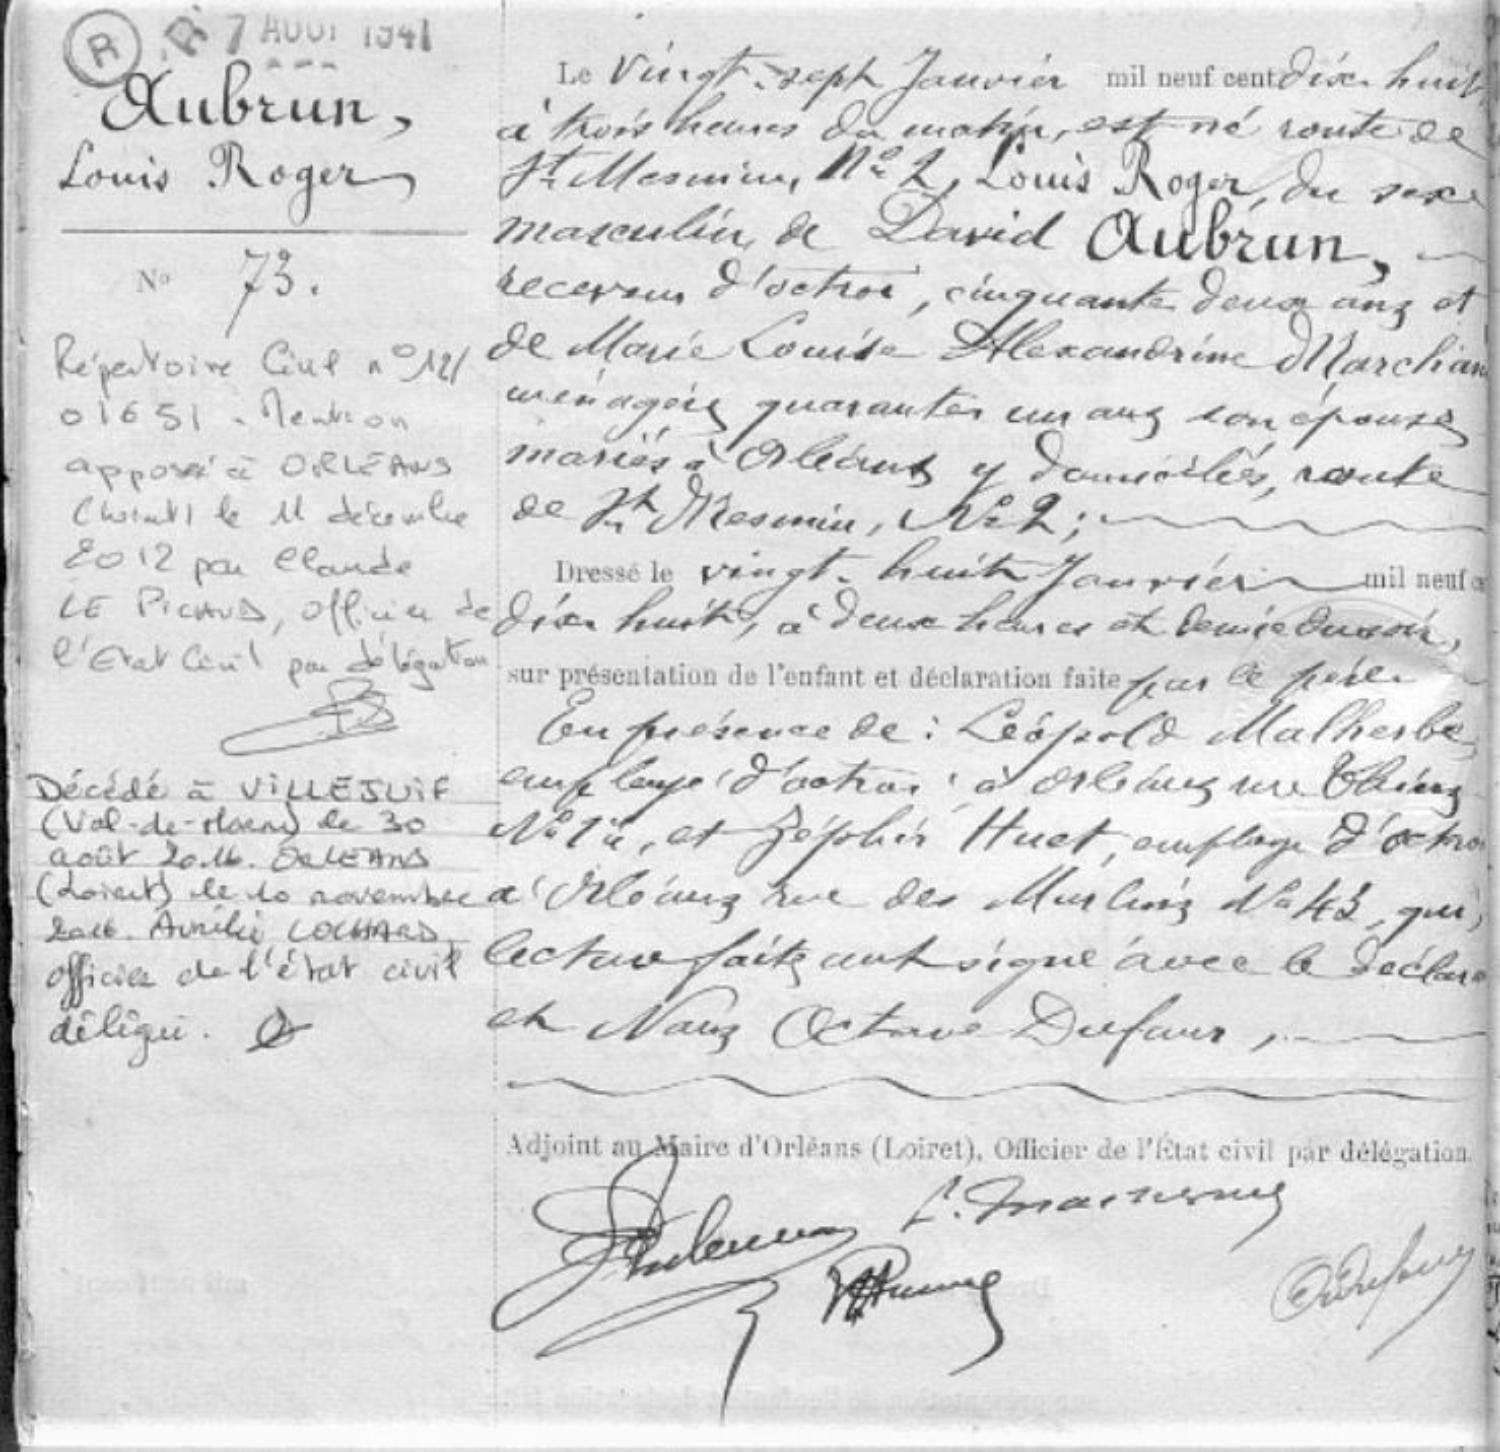 R
R 7 AOUT 1941
Aubrun,
Louis Roger
No 73.
Répertoire Civil n° 12/
01651 - Mention
apposée à ORLÉANS
(Loiret) le 11 décembre
2012 par Claude
LE PICARD, officier de
l'Etat Civil par délégation
Décédé à VILLEJUIF
(Val-de-Marne) le 30
août 2016. ORLEANS
(Loiret) le 10 novembre
2016. Aurélie LOCHARD,
officier de l'état civil
délégué.
Le vingt-sept Janvier mil neuf cent dix huit
à trois heures du matin, est né route de
St Mesmin, No 2, Louis Roger, du sexe
masculin, de David Aubrun,
receveur d'octroi, cinquante deux ans et
de Marie Louise Alexandrine Marchan
ménagère quarante un ans son épouse
mariés à Orléans y domiciliés, route
de St Mesmin, No 2;
Dressé le vingt-huit Janvier mil neuf c
dix huit, à deux heures et demie du soir,
sur présentation de l'enfant et déclaration faite par le père
En présence de : Léopold Malherbe
employé d'octroi à Orléans rue
No et Zéphir Huet, employé d'octroi
à Orléans rue des Murlins No 43, qui,
lecture faite ont signé avec le déclara
et Nous Octave Dufour,
Adjoint au Maire d'Orléans (Loiret), Officier de l'État civil par délégation.